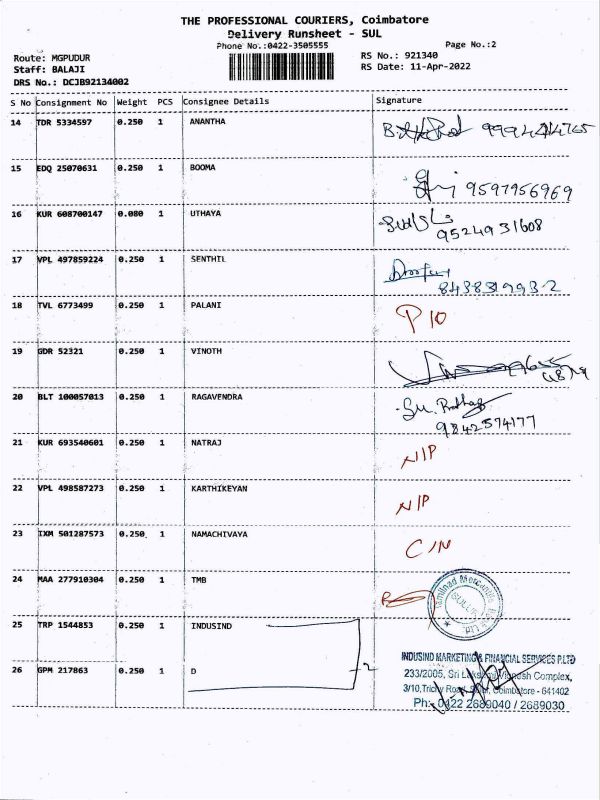 THE PROFESSIONAL COURIERS, Coimbatore
Delivery Runsheet - SUL
Phone No.:0422-3505555
Page No.:2
Route: MGPUDUR
RS No.: 921340
Staff: BALAJI
RS Date: 11-Apr-2022
DRS No.: DCJB92134002
S No Consignment No Weight PCS Consignee Details Signature
14 TDR 5334597 0.250 1 ANANTHA
15 EDQ 25070631 0.250 1 BOOMA
9597956969
16 KUR 608700147 0.080 1 UTHAYA
9524931608
17 VPL 497859224 0.250 1 SENTHIL
18 TVL 6773499 0.250 1 PALANI P 10
19 GDR 52321 0.250 1 VINOTH
20 BLT 100057013 0.250 1 RAGAVENDRA
9842574177
21 KUR 693540601 0.250 1 NATRAJ N/P
22 VPL 498587273 0.250 1 KARTHIKEYAN N/P
23 IXM 501287573 0.250 1 NAMACHIVAYA C/N
24 MAA 277910304 0.250 1 TMB
Tamilnad Mercantile Bank Ltd
25 TRP 1544853 0.250 1 INDUSIND
2
26 GPM 217863 0.250 1 D
INDUSIND MARKETING & FINANCIAL SERVICES P.LTD
233/2005, Sri Complex,
3/10, Trichy Road, Sulur, Coimbatore - 641402
Ph: 0422 2689040 / 2689030